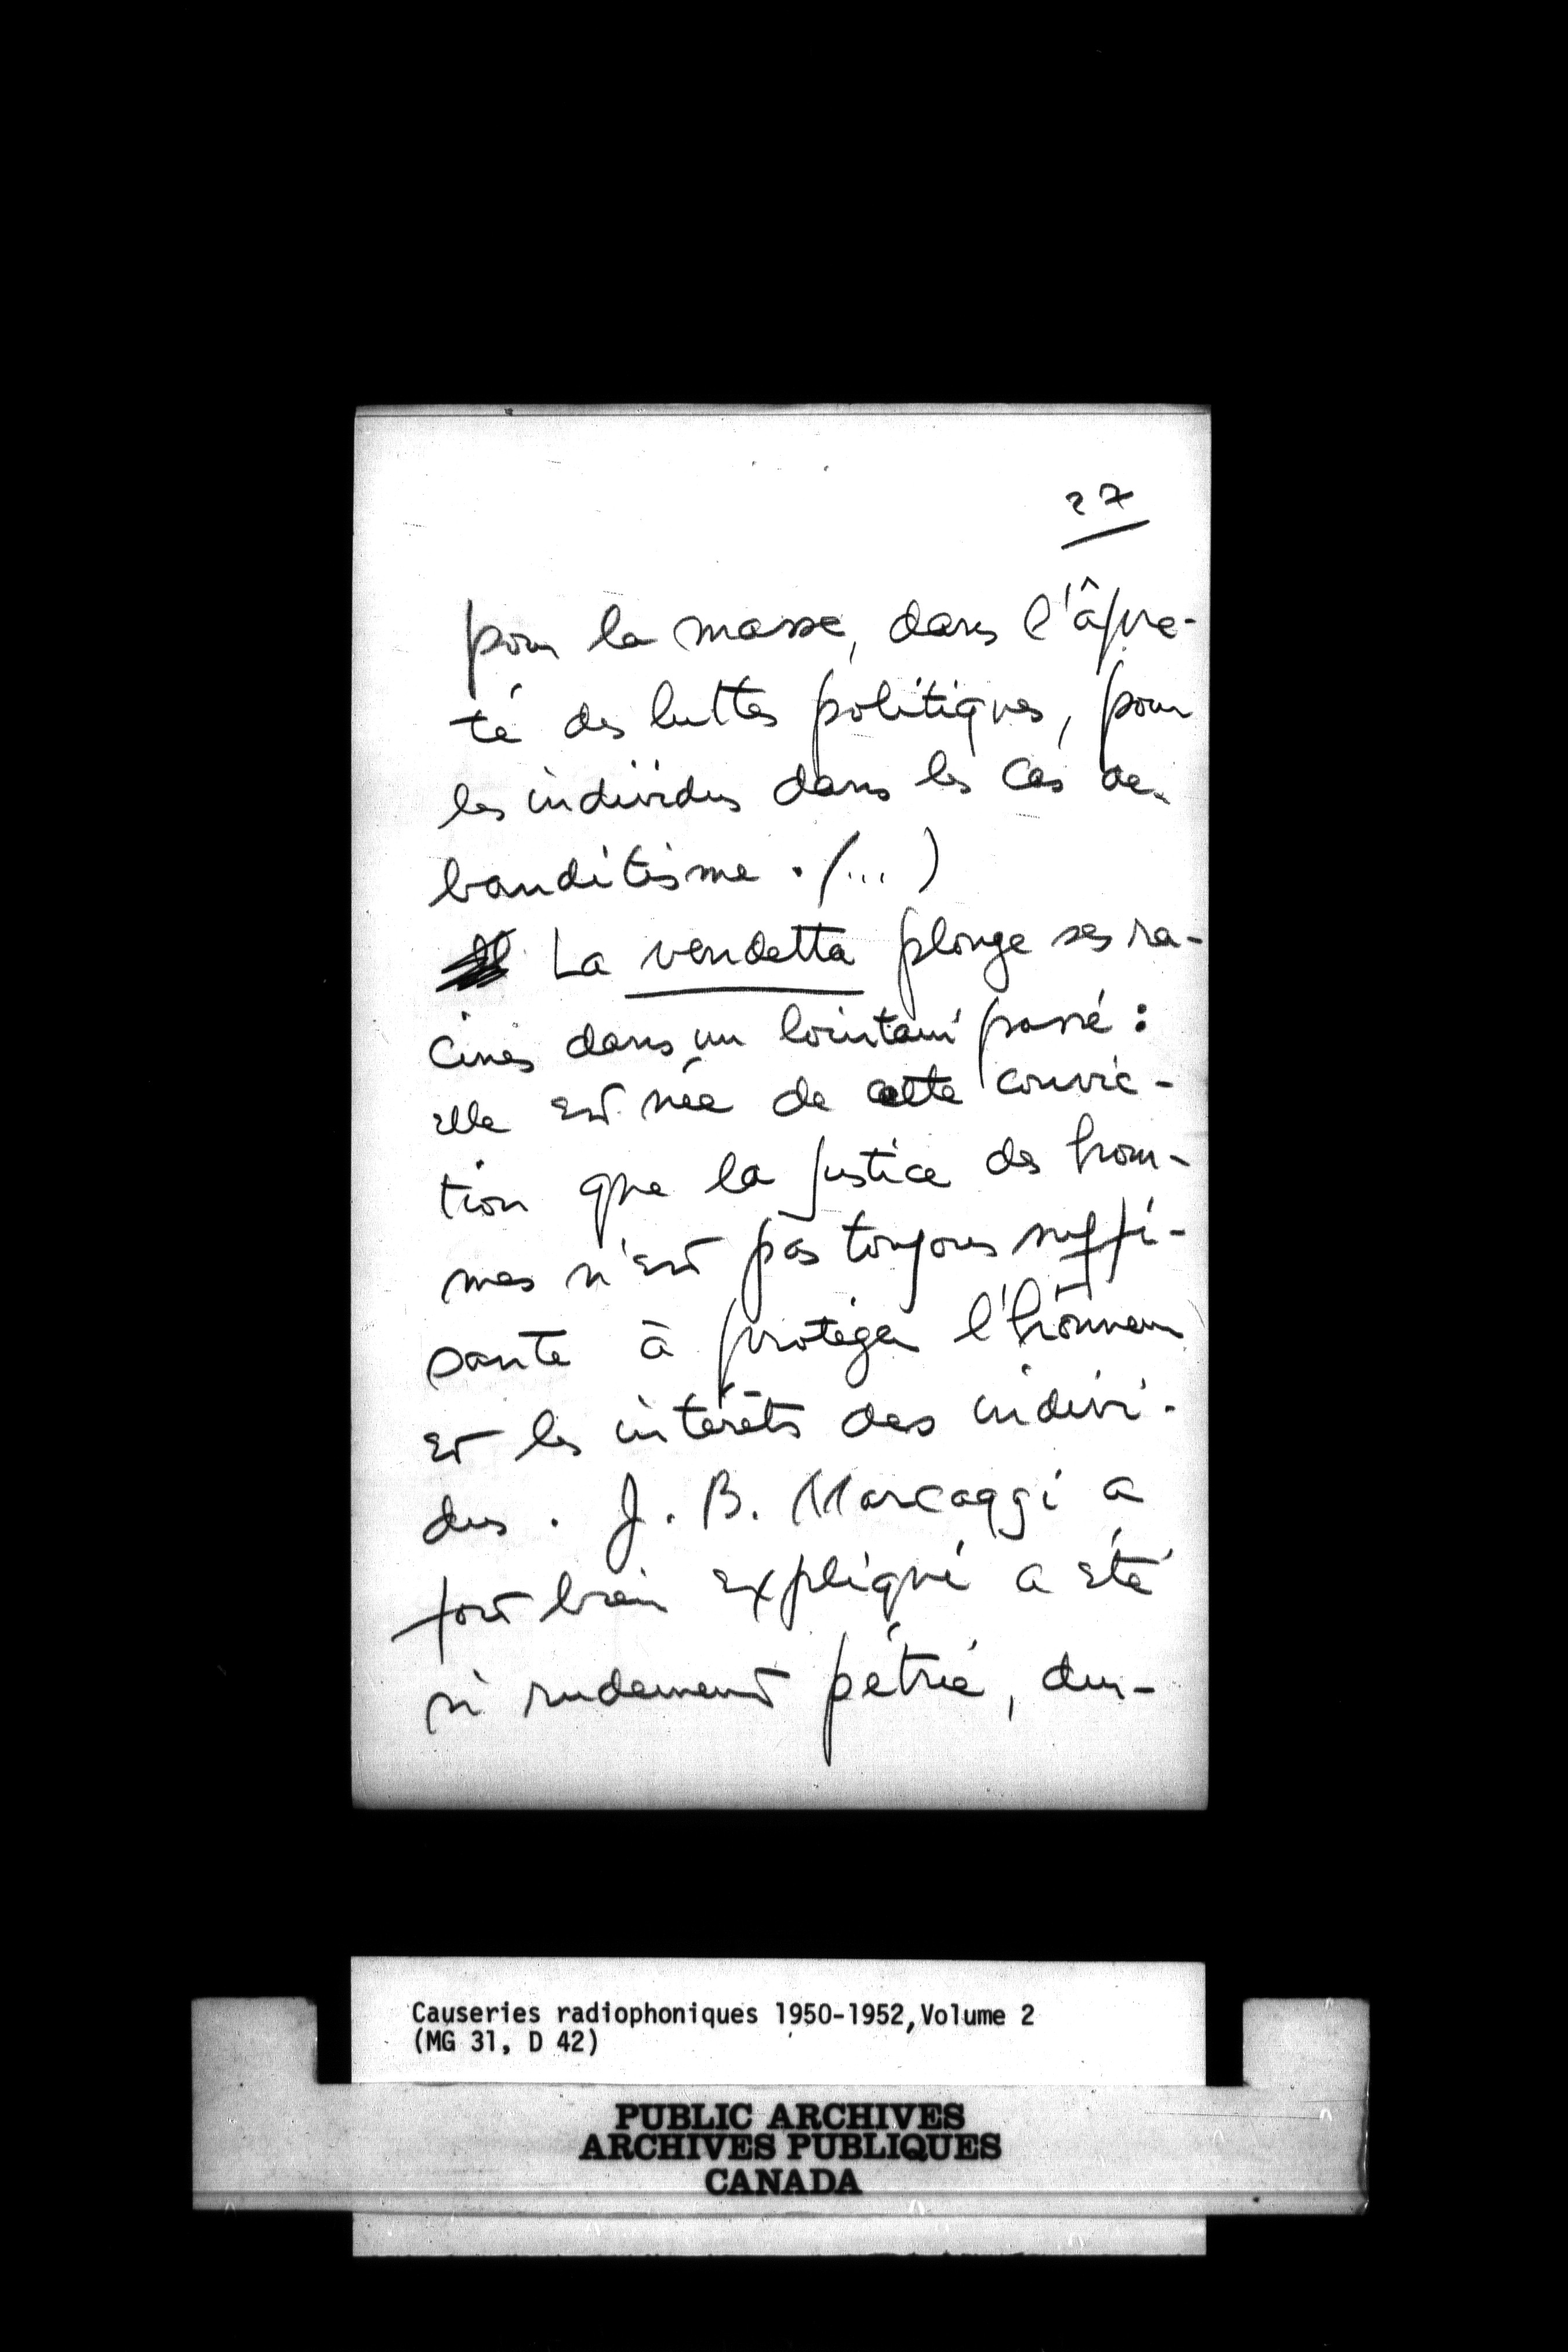 27
pour la masse, dans l'âpre-
té des luttes politiques, pour
les individus dans les cas de
banditisme. (...)
La vendetta plonge ses ra-
cines dans un lointain passé :
elle est née de cette convic-
tion que la justice des hom-
mes n'est pas toujours suffi-
sante à protéger l'honneur
et les intérêts des indivi-
dus. J. B. Marcaggi a
fort bien expliqué a été
si rudement pétrie, dur-
Causeries radiophoniques 1950-1952, Volume 2
(MG 31, D 42)
PUBLIC ARCHIVES
ARCHIVES PUBLIQUES
CANADA